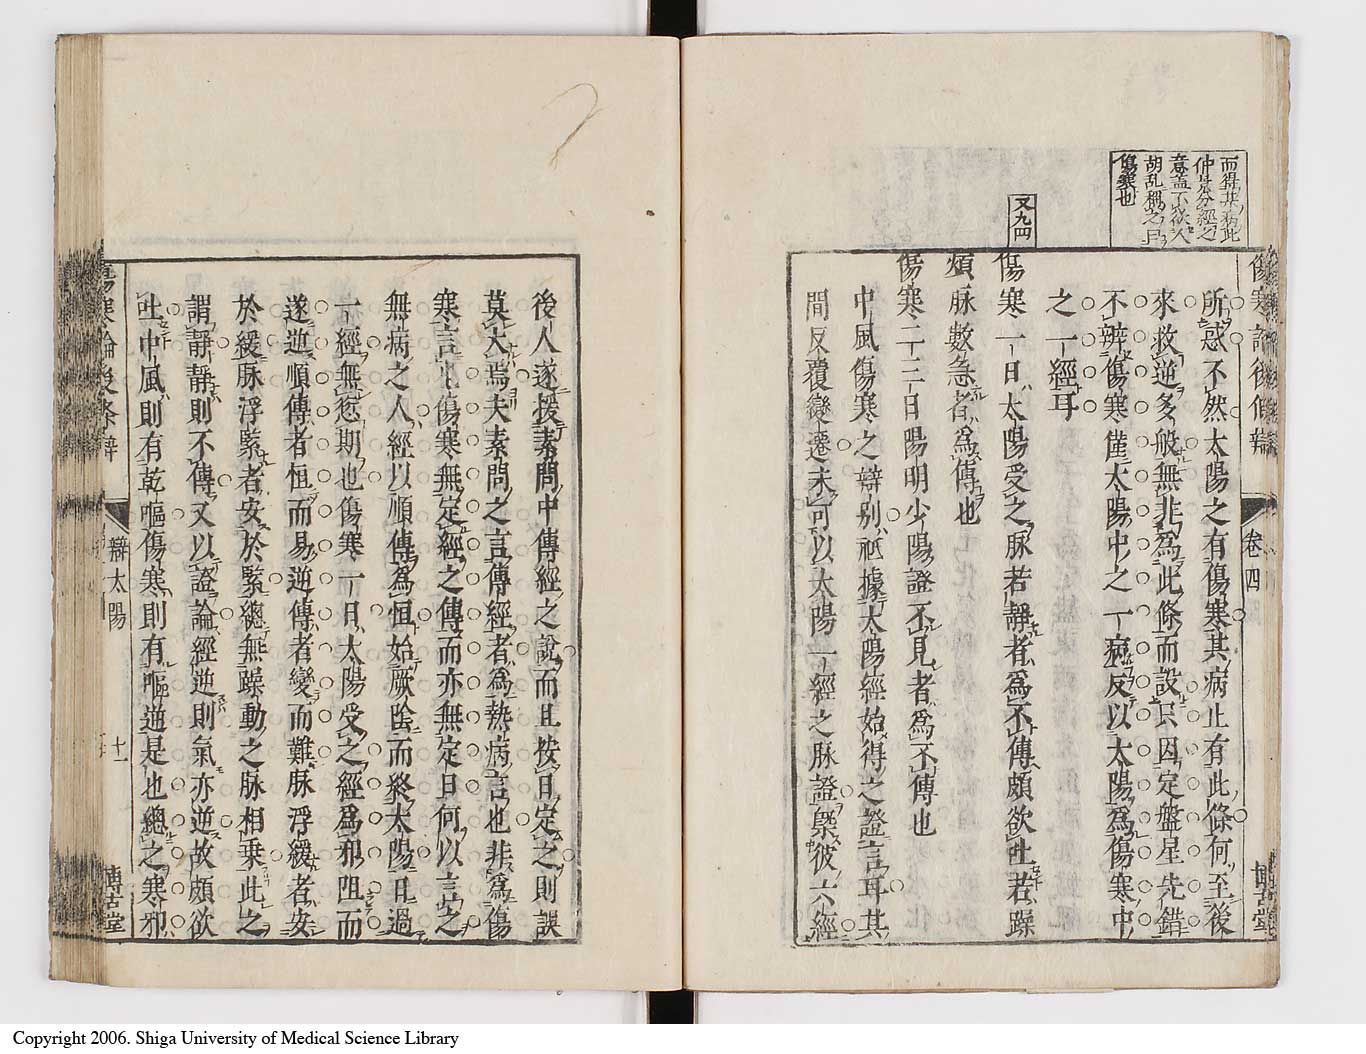 而得其病此
仲景分經之
意蓋不欲人
胡乱稱之曰
傷寒也
所惑不然太陽之有傷寒其病止有此條何至後
來救逆多般無非爲此條而設只因定盤星先錯
不辨傷寒僅太陽中之一病反以太陽爲傷寒中
之一經耳
又九四
傷寒一日太陽受之脉若靜者爲不傳頗欲吐若躁
煩脉數急者爲傳也
傷寒二三日陽明少陽證不見者爲不傳也
中風傷寒之辯别祇據太陽經始得之證言耳其
間反覆變遷未可以太陽一經之脉證槩彼六經
卷四
博古堂
後人遂援素問中傳經之說而且按日定之則誤
莫大焉夫素問之言傳經者爲熱病言也非爲傷
寒言也傷寒無定經之傳而亦無定日何以言之
無病之人經以順傳爲恒始厥陰而終太陽日過
一經無愆期也傷寒一日太陽受之經爲邪阻而
遂逆順傳者恒而易逆傳者變而難脉浮緩者安
於緩脉浮緊者安於緊總無躁動之脉相乗此之
謂靜靜則不傳又以證論經逆則氣亦逆故頗欲
吐中風則有乾嘔傷寒則有嘔逆是也總之寒邪
傷寒論後條辯
辯太陽
十一
博古堂
Copyright 2006. Shiga University of Medical Science Library